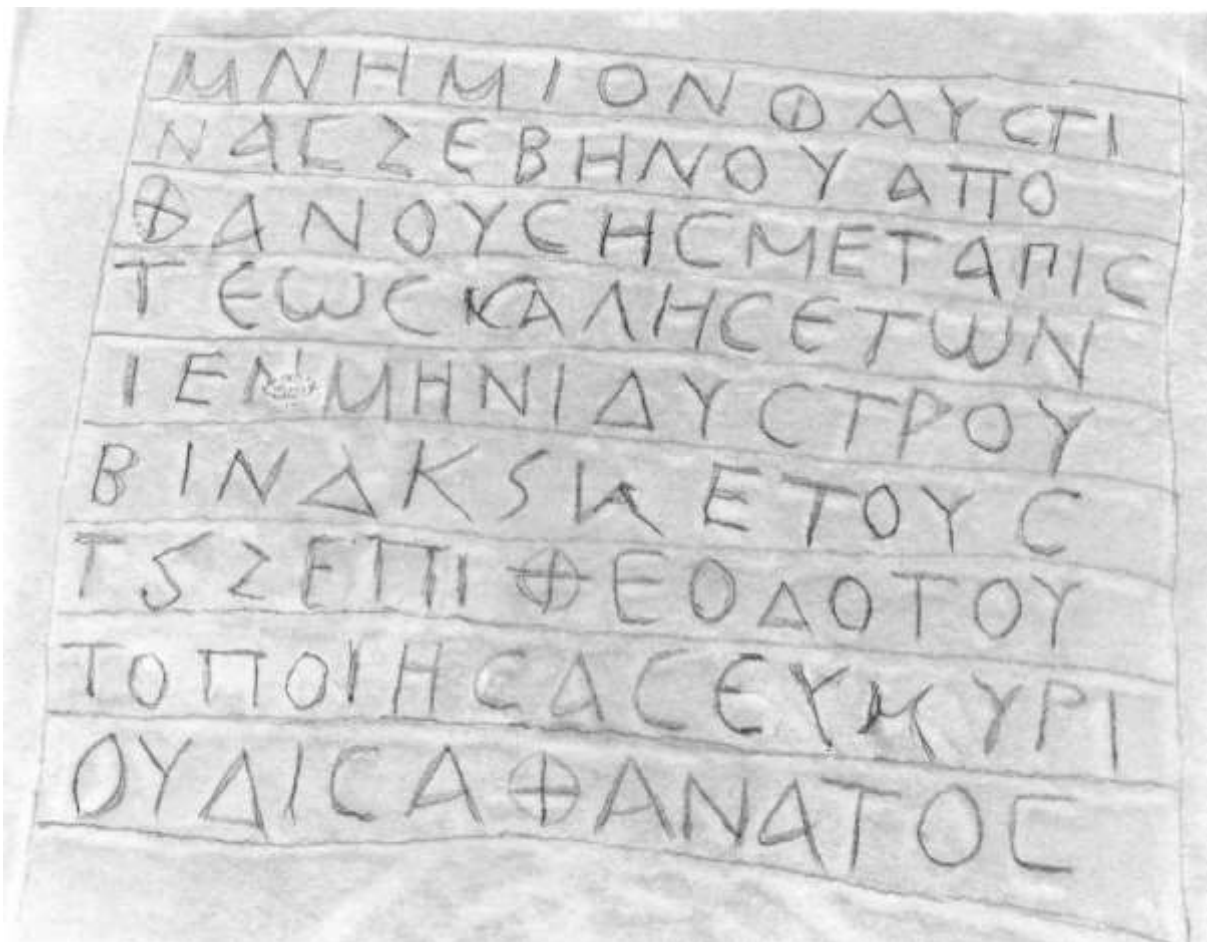 ΜΝΗΜΙΟΝΦΑΥCΤΙ
ΝΑCΣΕΒΗΝΟΥΑΠΟ
ΘΑΝΟΥCΗCΜΕΤΑΠΙC
ΤΕΩCΚΑΛΗCΕΤΩΝ
ΙΕΝΜΗΝΙΔΥCΤΡΟΥ
ΒΙΝΔΚSΙΑΕΤΟΥC
ΤSΖΕΠΙΘΕΟΔΟΤΟΥ
ΤΟΠΟΙΗCΑCΕΥΚΥΡΙ
ΟΥΔΙCΑΘΑΝΑΤΟC